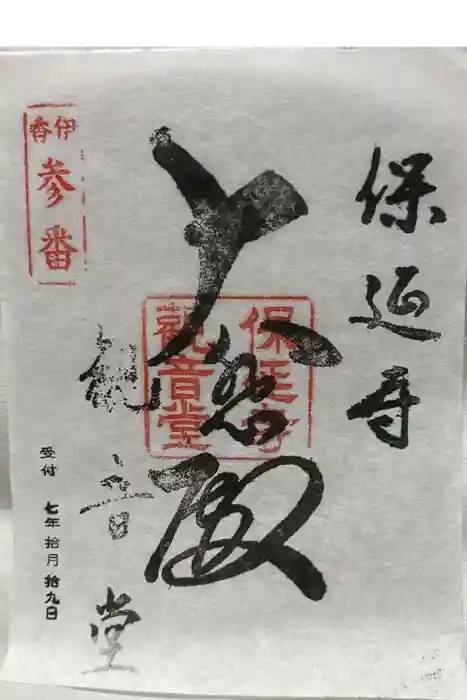 保延寺
大悲殿
保延寺
觀音堂
観音堂
伊香
参番
受付 七年拾月拾九日